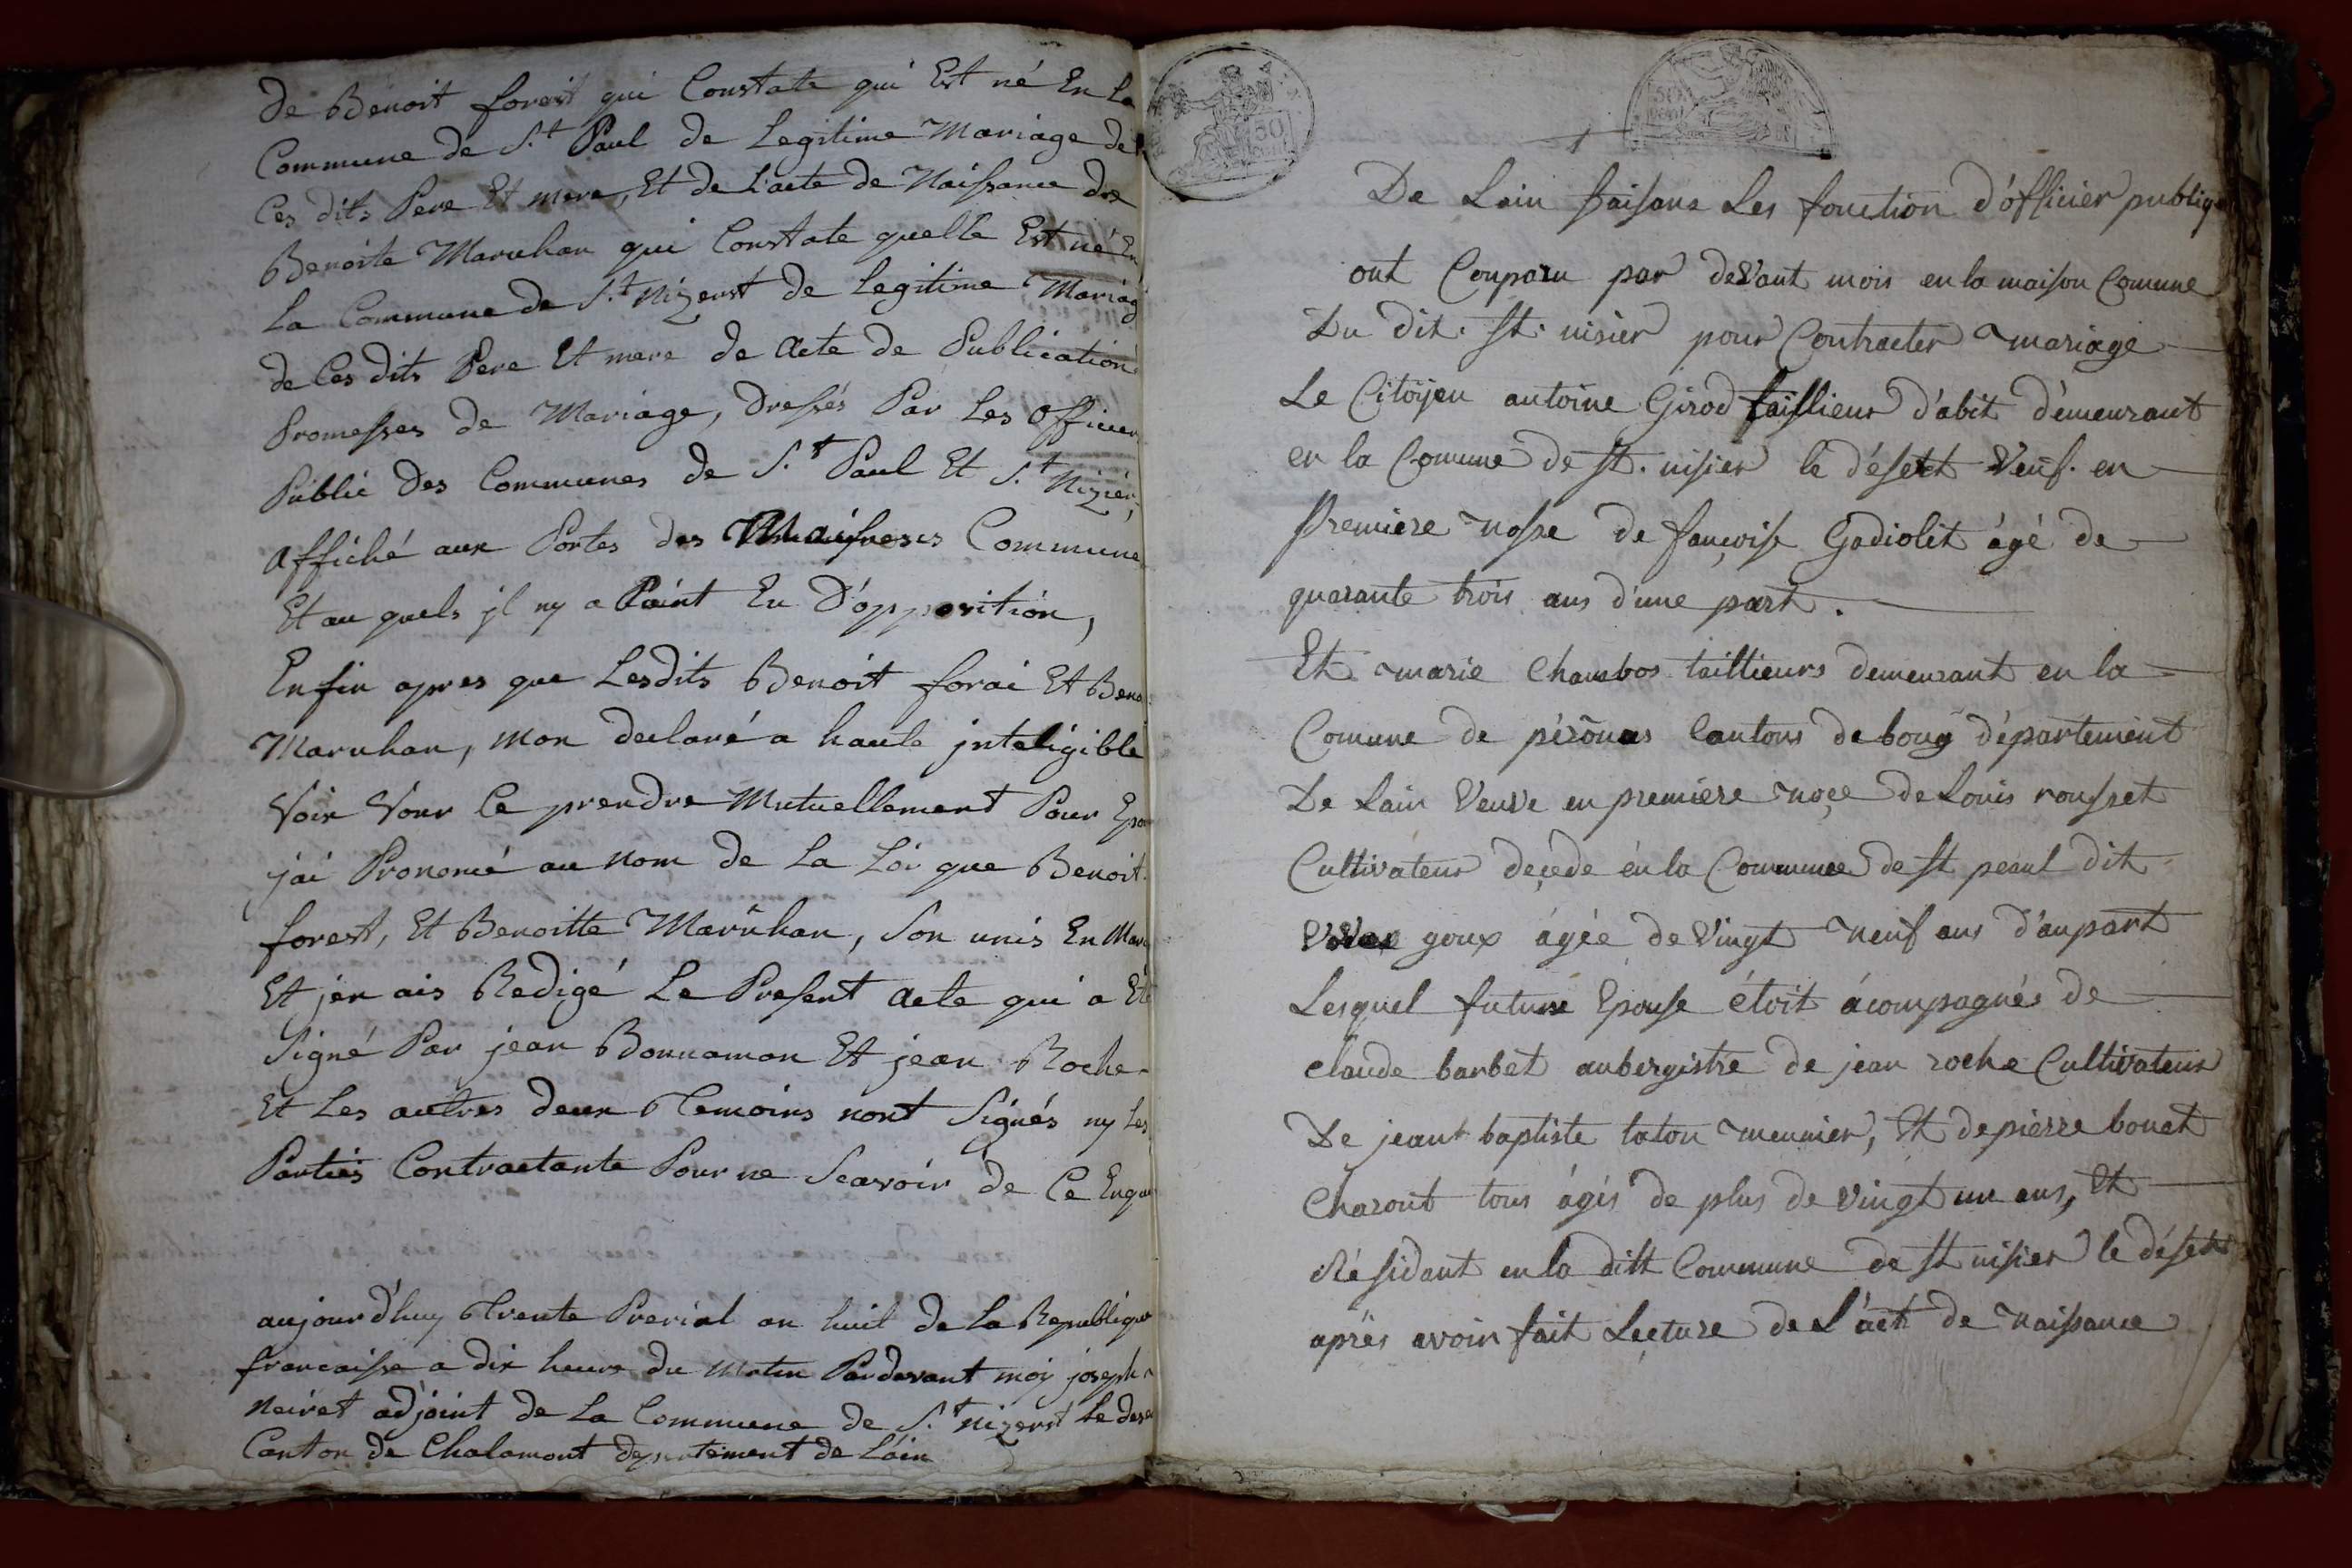 De Benoit forest qui Constate qui Est né En La
Commune de S.t Paul de Legitime Mariage de
Ces dits Pere Et mere, Et de L'acte de Naissance de
Benoite Maruhan qui Constate quelle Est né En
La Commune de S.t Nizerst de Legitime Mariag
de Ces dits Pere Et mere de Acte de Publication
Promesses de Mariage, Dressés Par Les Officier
Public Des Communes de S.t Paul Et S.t Nizier,
Affiché aux Portes des Maisons Commune
Et au quels jl ny a Point Eu D'opposition,
Enfin apres que Lesdits Benoit forai Et Beno
Maruhan, mon declaré a haute jnteligible
Voix Vour Ce prendre Mutuellement Pour Epou
j'ai Prononcé au nom de La Loi que Benoit
forest, Et Benoitte Maruhan, Son unis En Mar
Et jen ais Redigé Le Present Acte qui a Eté
Signé Par jean Bonnaman Et jean Roche
Et Les autres deux Temoins nont Signés ny Les
Parties Contractante Pour ne Scavoir de Ce Enqu
aujourd'huy Trente Prerial an huit de La Republique
francaisse a dix heure du Matin Pardevant moy joseph
Neiret adjoint de La Commune de S.t Nizerst Le dese
Canton de Chalamont departement de Lain
De Lain faisans Les fonction d'officier publiqu
ont Conparu par devant mois en la maison Comune
Du dit. St. nisier pour Contracter mariage
Le Citoyen antoine Girod taillieur d'abit démeurant
en la Comune de St. nisier le désert Veuf. en
Premiere nosse de fançoise Godiolet ágé de
quarante trois ans d'une part.
Et marie Chambos taillieurs demeurant en la
Comune de péronas Cantons de boug département
De Lain Veuve en premiere noçe de Louis rousset
Cultivateur deçede én la Commune de St peaul dit
goux ágée de Vingt neuf ans d'aupart
Lesquel future Epouse étoit ácompagnés de
claude barbet aubergistre de jean roche Cultivateur
De jeant baptiste laton meunier, Et de pierre bouet
Charont tous ágés de plus de Vingt un ans, Et
Résidant en la ditt Commune de St nisier le désert
aprés avoir fait Lecture de l'act de naissance